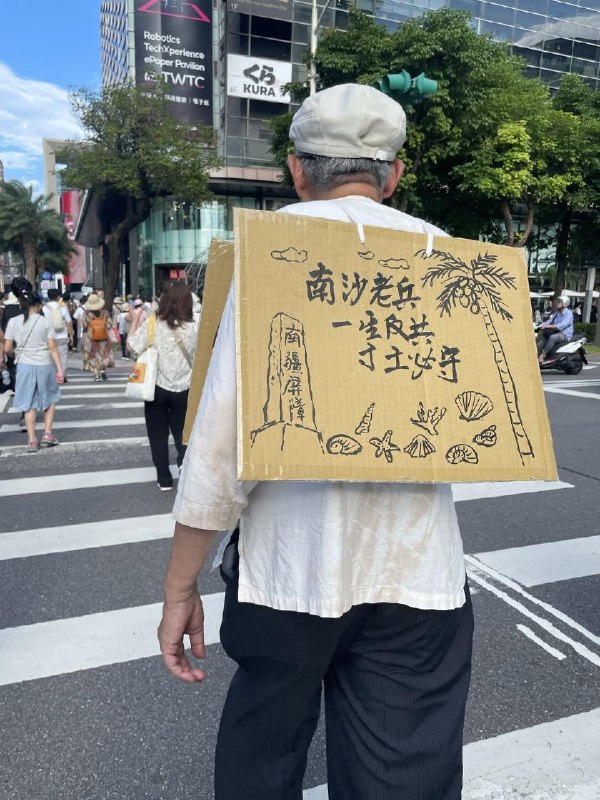 Robotics
TechXperience
ePaper Pavilion
TWTC
くら
KURA
4F
南沙老兵
一生反共
寸土必守
南疆屏障